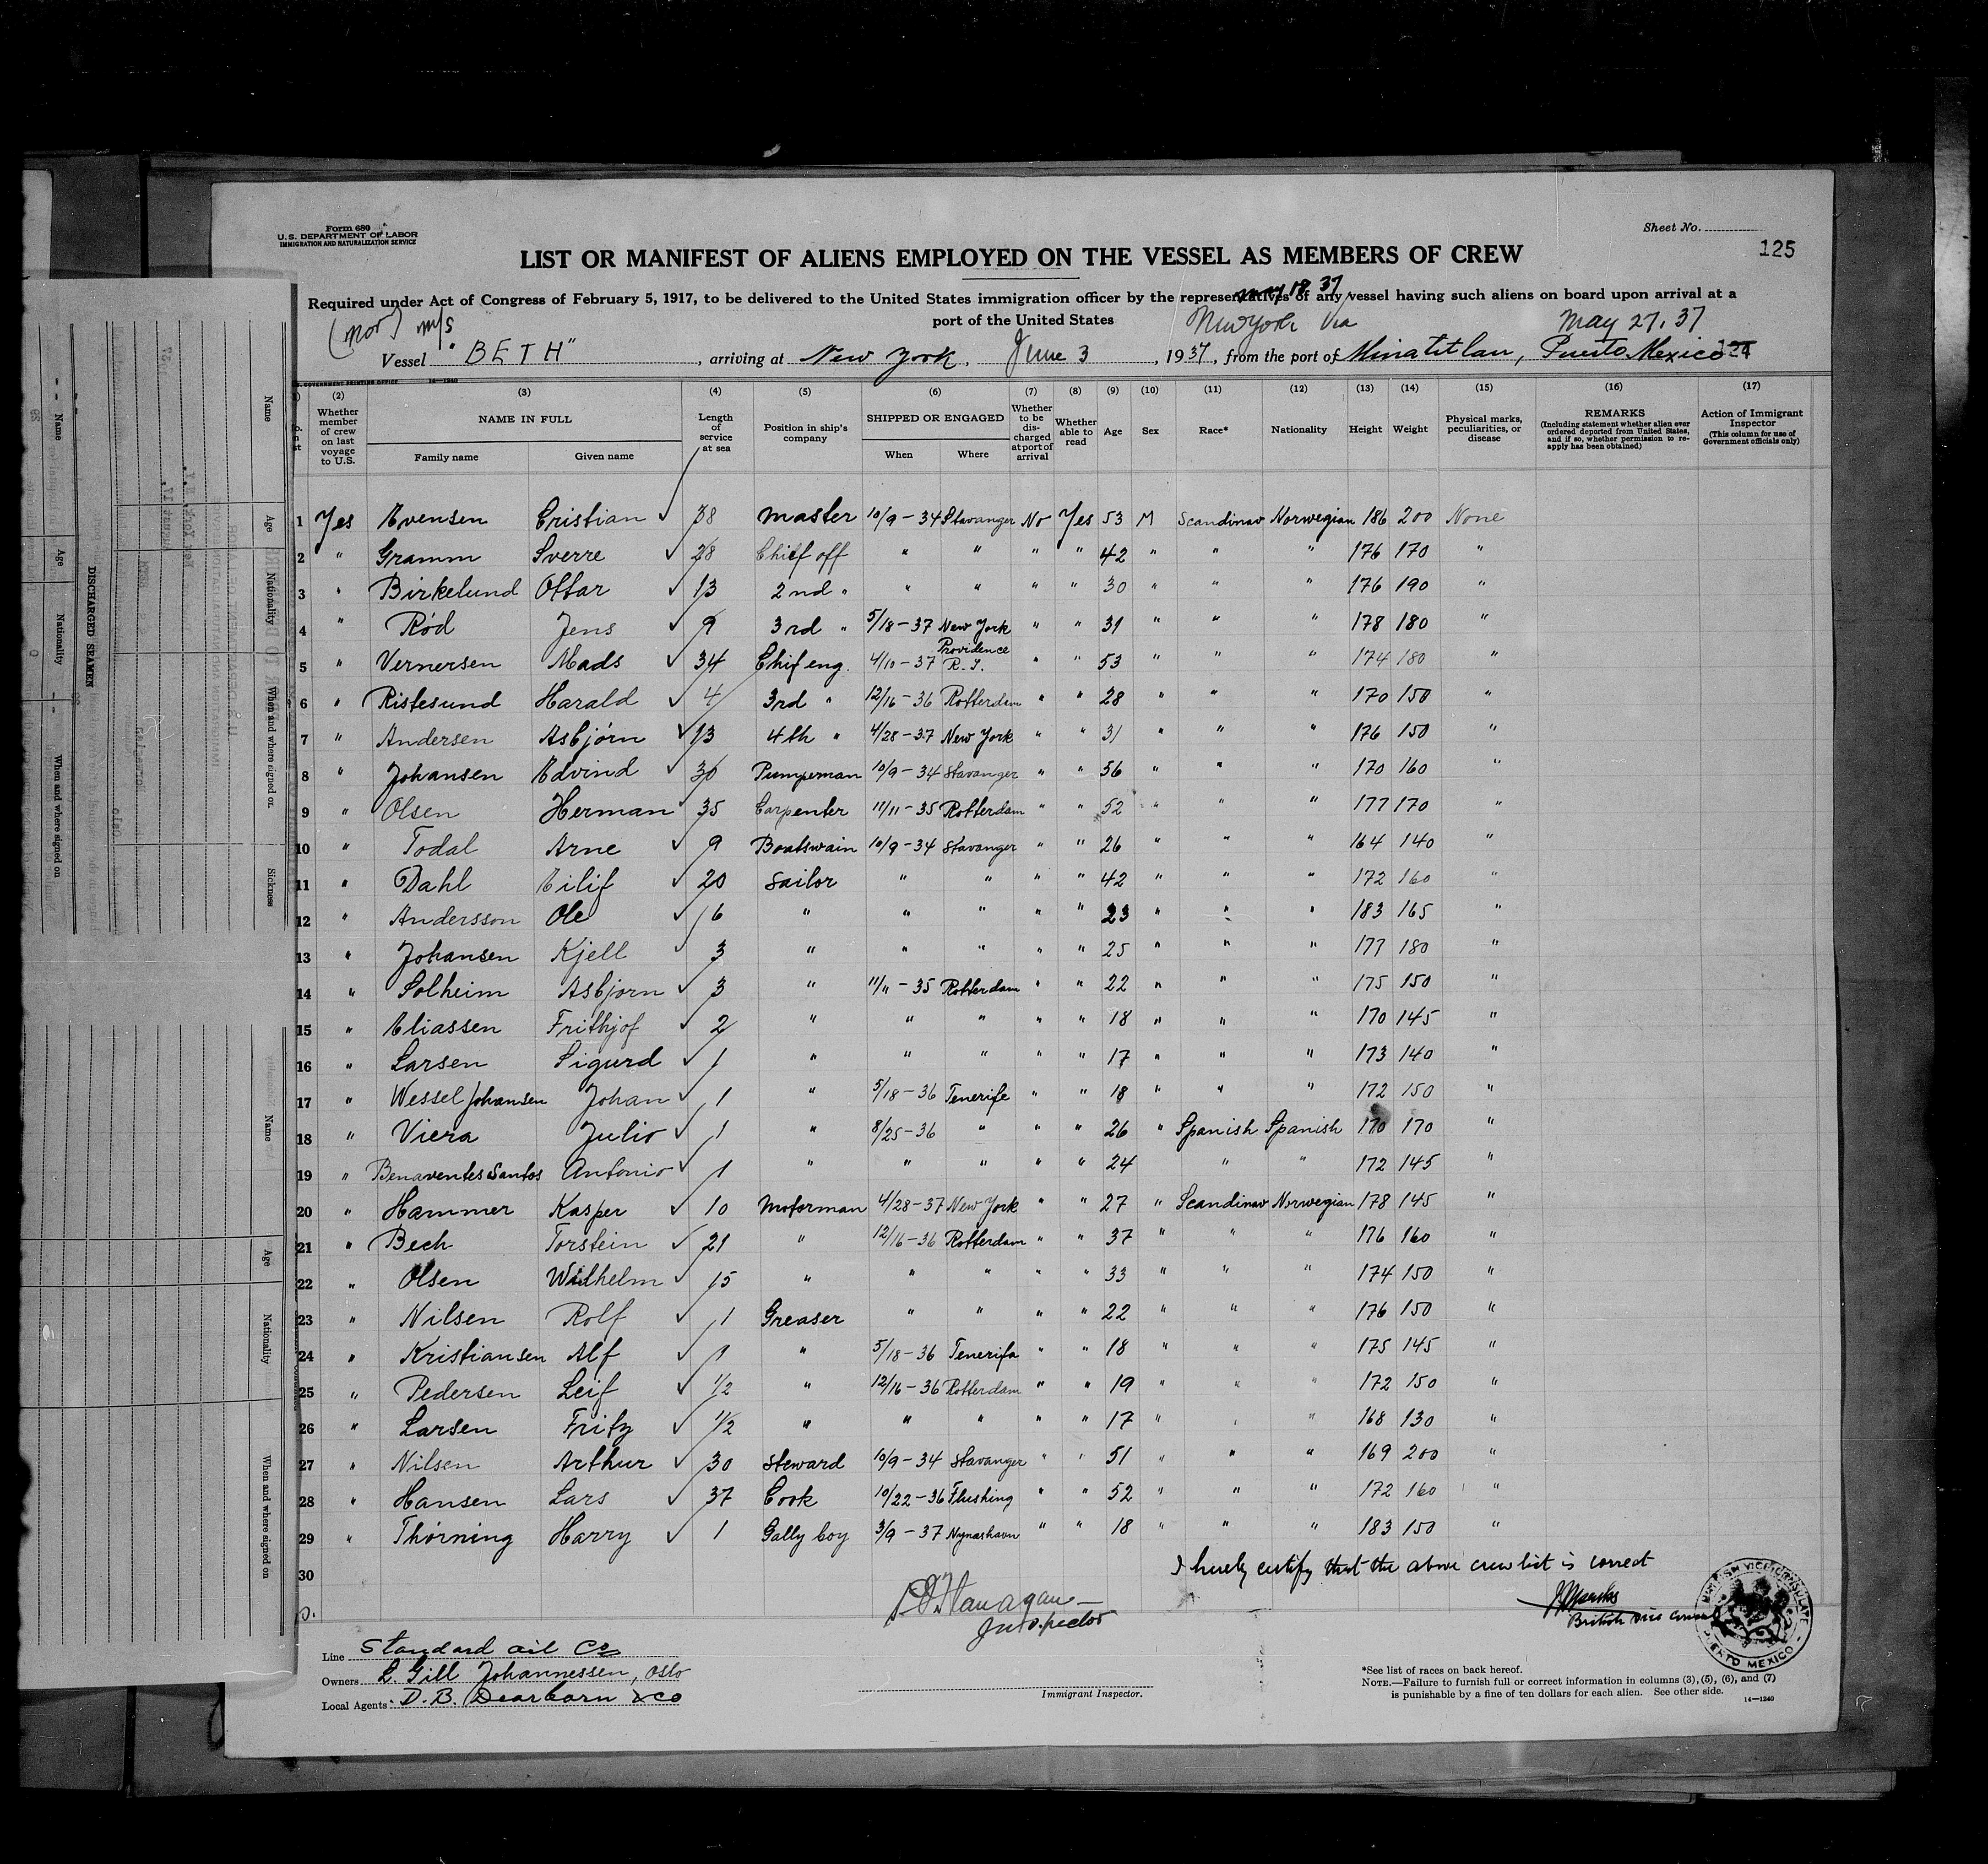 Form 680
U.S. DEPARTMENT OF LABOR
IMMIGRATION AND NATURALIZATION SERVICE
Sheet No.
125
LIST OR MANIFEST OF ALIENS EMPLOYED ON THE VESSEL AS MEMBERS OF CREW
Required under Act of Congress of February 5, 1917, to be delivered to the United States immigration officer by the representatives of any vessel having such aliens on board upon arrival at a
port of the United States
May 18 37
(Nor) M/S New York Via May 27, 37
Vessel "BETH", arriving at New York, June 3, 1937, from the port of Minatitlan, Puerto Mexico 124
GOVERNMENT PRINTING OFFICE 14—1240
(2) (3) (4) (5) (6) (7) (8) (9) (10) (11) (12) (13) (14) (15) (16) (17)
Whether member of crew on last voyage to U.S.
NAME IN FULL
Family name Given name
Length of service at sea
Position in ship's company
SHIPPED OR ENGAGED
When Where
Whether to be discharged at port of arrival
Whether able to read
Age
Sex
Race*
Nationality
Height
Weight
Physical marks, peculiarities, or disease
REMARKS
(Including statement whether alien ever ordered deported from United States, and if so, whether permission to reapply has been obtained)
Action of Immigrant Inspector
(This column for use of Government officials only)
1 Yes Evensen Cristian 38 Master 10/9-34 Stavanger No Yes 53 M Scandinav Norwegian 186 200 None
2 " Gramm Sverre 28 Chief off " " " " 42 " " " 176 170 "
3 " Birkelund Ottar 13 2nd " " " " " 30 " " " 176 190 "
4 " Rød Jens 9 3rd " 5/18-37 New York " " 31 " " " 178 180 "
5 " Vernersen Mads 34 Chif eng. 4/10-37 Providence R.I. " " 53 " " " 174 180 "
6 " Ristesund Harald 4 3rd " 12/16-36 Rotterdam " " 28 " " " 170 150 "
7 " Andersen Asbjørn 13 4th " 4/28-37 New York " " 31 " " " 176 150 "
8 " Johansen Edvind 30 Pumpeman 10/9-34 Stavanger " " 56 " " " 170 160 "
9 " Olsen Herman 35 Carpenter 11/11-35 Rotterdam " " 52 " " " 177 170 "
10 " Todal Arne 9 Boatswain 10/9-34 Stavanger " " 26 " " " 164 140 "
11 " Dahl Eilif 20 Sailor " " " " 42 " " " 172 160 "
12 " Andersson Ole 6 " " " " " 23 " " " 183 165 "
13 " Johansen Kjell 3 " " " " " 25 " " " 177 180 "
14 " Solheim Asbjørn 3 " 11/11-35 Rotterdam " " 22 " " " 175 150 "
15 " Eliassen Frithjof 2 " " " " " 18 " " " 170 145 "
16 " Larsen Sigurd 1 " " " " " 17 " " " 173 140 "
17 " Wessel Johansen Johan 1 " 5/18-36 Tenerife " " 18 " " " 172 150 "
18 " Viera Julio 1 " 8/25-36 " " " 26 " Spanish Spanish 170 170 "
19 " Benaventes Santos Antonio 1 " " " " " 24 " " 172 145 "
20 " Hammer Kasper 10 Motorman 4/28-37 New York " " 27 " Scandinav Norwegian 178 145 "
21 " Bech Torstein 21 " 12/16-36 Rotterdam " " 37 " " " 176 160 "
22 " Olsen Wilhelm 15 " " " " " 33 " " " 174 150 "
23 " Nilsen Rolf 1 Greaser " " " " 22 " " " 176 150 "
24 " Kristiansen Alf 1 " 5/18-36 Tenerifa " " 18 " " " 175 145 "
25 " Pedersen Leif 1/2 " 12/16-36 Rotterdam " " 19 " " " 172 150 "
26 " Larsen Fritz 1/2 " " " " " 17 " " " 168 130 "
27 " Nilsen Arthur 30 Steward 10/9-34 Stavanger " " 51 " " " 169 200 "
28 " Hansen Lars 37 Cook 10/22-36 Flushing " " 52 " " " 172 160 "
29 " Thørning Harry 1 Gally boy 3/9-37 Nynashavn " " 18 " " " 183 150 "
30
I hereby certify that the above crew list is correct
British vice consul
BRITISH VICE CONSULATE
PUERTO MEXICO
Flanagan
Inspector
Line Standard Oil Co
Owners L. Gill Johannessen, Oslo
Local Agents D.B. Dearborn & Co
Immigrant Inspector.
*See list of races on back hereof.
NOTE.—Failure to furnish full or correct information in columns (3), (5), (6), and (7)
is punishable by a fine of ten dollars for each alien. See other side.
14—1240
Name
Age
Nationality
When and where signed on
DISCHARGED SEAMEN
Name
Age
Nationality
When and where signed or.
Sickness
Name
Age
Nationality
When and where signed on